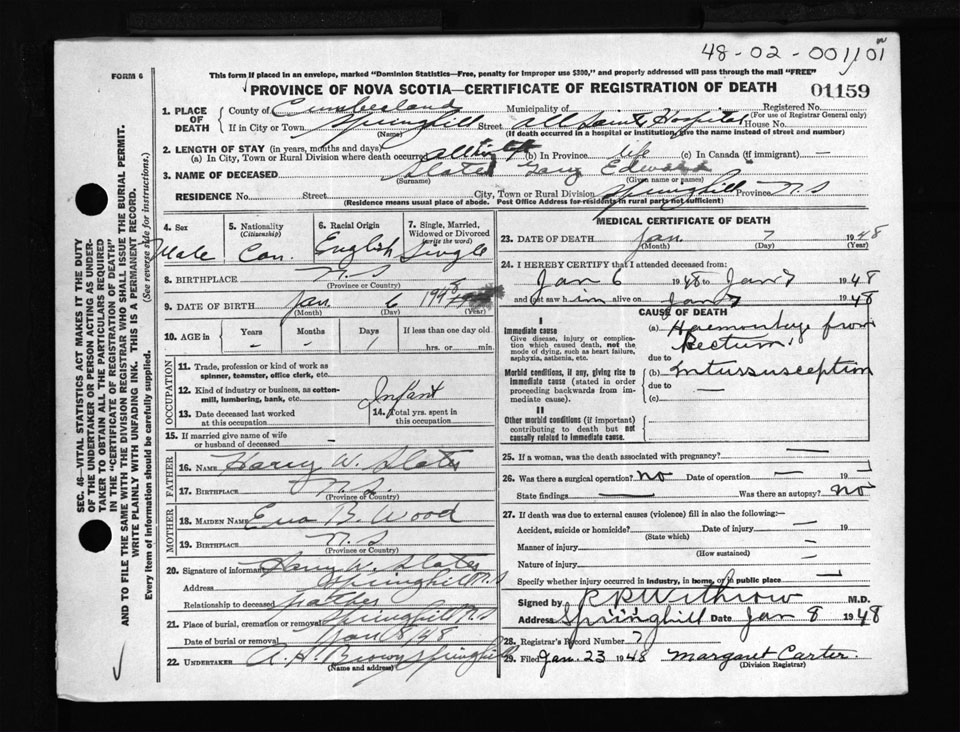 48-02-001101
FORM 6
This form if placed in an envelope, marked "Dominion Statistics—Free, penalty for improper use $300," and properly addressed will pass through the mail "FREE"
PROVINCE OF NOVA SCOTIA—CERTIFICATE OF REGISTRATION OF DEATH
01159
1. PLACE OF DEATH
County of Cumberland Municipality of Registered No.
(For use of Registrar General only)
If in City or Town Springhill Street All Saints Hospital House No.
(Name) (If death occurred in a hospital or institution, give the name instead of street and number)
2. LENGTH OF STAY (in years, months and days)
(a) In City, Town or Rural Division where death occurred all life (b) In Province life (c) In Canada (if immigrant) —
3. NAME OF DECEASED Slater Gary Edward
(Surname) (Given name or names)
RESIDENCE No. Street City, Town or Rural Division Springhill Province N.S
(Residence means usual place of abode. Post Office Address for residents in rural parts not sufficient)
4. Sex
Male
5. Nationality
(Citizenship)
Can.
6. Racial Origin
English
7. Single, Married, Widowed or Divorced
(write the word)
Single
8. BIRTHPLACE N.S
(Province or Country)
9. DATE OF BIRTH Jan. 6 1948
(Month) (Day) (Year)
10. AGE in Years Months Days If less than one day old
– – 1 hrs. or min.
OCCUPATION
11. Trade, profession or kind of work as
spinner, teamster, office clerk, etc.
12. Kind of industry or business, as cotton-
mill, lumbering, bank, etc.
Infant
13. Date deceased last worked
at this occupation
14. Total yrs. spent in
this occupation
15. If married give name of wife
or husband of deceased –
FATHER
16. NAME Harry W. Slater
17. BIRTHPLACE N.S.
(Province or Country)
MOTHER
18. MAIDEN NAME Eva B. Wood
19. BIRTHPLACE N.S
(Province or Country)
20. Signature of informant Harry W. Slater
Address Springhill N.S
Relationship to deceased father
21. Place of burial, cremation or removal Springhill N.S
Date of burial or removal Jan 8/48
22. UNDERTAKER A. H. Brown Springhill
(Name and address)
MEDICAL CERTIFICATE OF DEATH
23. DATE OF DEATH Jan. 7 1948
(Month) (Day) (Year)
24. I HEREBY CERTIFY that I attended deceased from:
Jan 6 1948 to Jan 7 1948
and last saw him alive on Jan 7 1948
CAUSE OF DEATH
I
Immediate cause
Give disease, injury or complication which caused death, not the mode of dying, such as heart failure, asphyxia, asthenia, etc.
(a) Haemorrhage from
Rectum.
due to
Morbid conditions, if any, giving rise to immediate cause (stated in order proceeding backwards from immediate cause).
(b) Intussusception
due to —
(c)
II
Other morbid conditions (if important) contributing to death but not causally related to immediate cause.
25. If a woman, was the death associated with pregnancy? —
26. Was there a surgical operation? No Date of operation — 19
State findings — Was there an autopsy? No
27. If death was due to external causes (violence) fill in also the following:—
Accident, suicide or homicide? Date of injury — 19
(State which)
Manner of injury —
(How sustained)
Nature of injury
Specify whether injury occurred in industry, in home, or in public place —
Signed by R P Withrow M.D.
Address Springhill Date Jan 8 1948
28. Registrar's Record Number 7
29. Filed Jan. 23 1948 Margaret Carter.
(Division Registrar)
SEC. 46—VITAL STATISTICS ACT MAKES IT THE DUTY
OF THE UNDERTAKER OR PERSON ACTING AS UNDER-
TAKER TO OBTAIN ALL THE PARTICULARS REQUIRED
IN THE "CERTIFICATE OF REGISTRATION OF DEATH"
AND TO FILE THE SAME WITH THE DIVISION REGISTRAR WHO SHALL ISSUE THE BURIAL PERMIT.
WRITE PLAINLY WITH UNFADING INK. THIS IS A PERMANENT RECORD.
Every item of information should be carefully supplied. (See reverse side for instructions.)